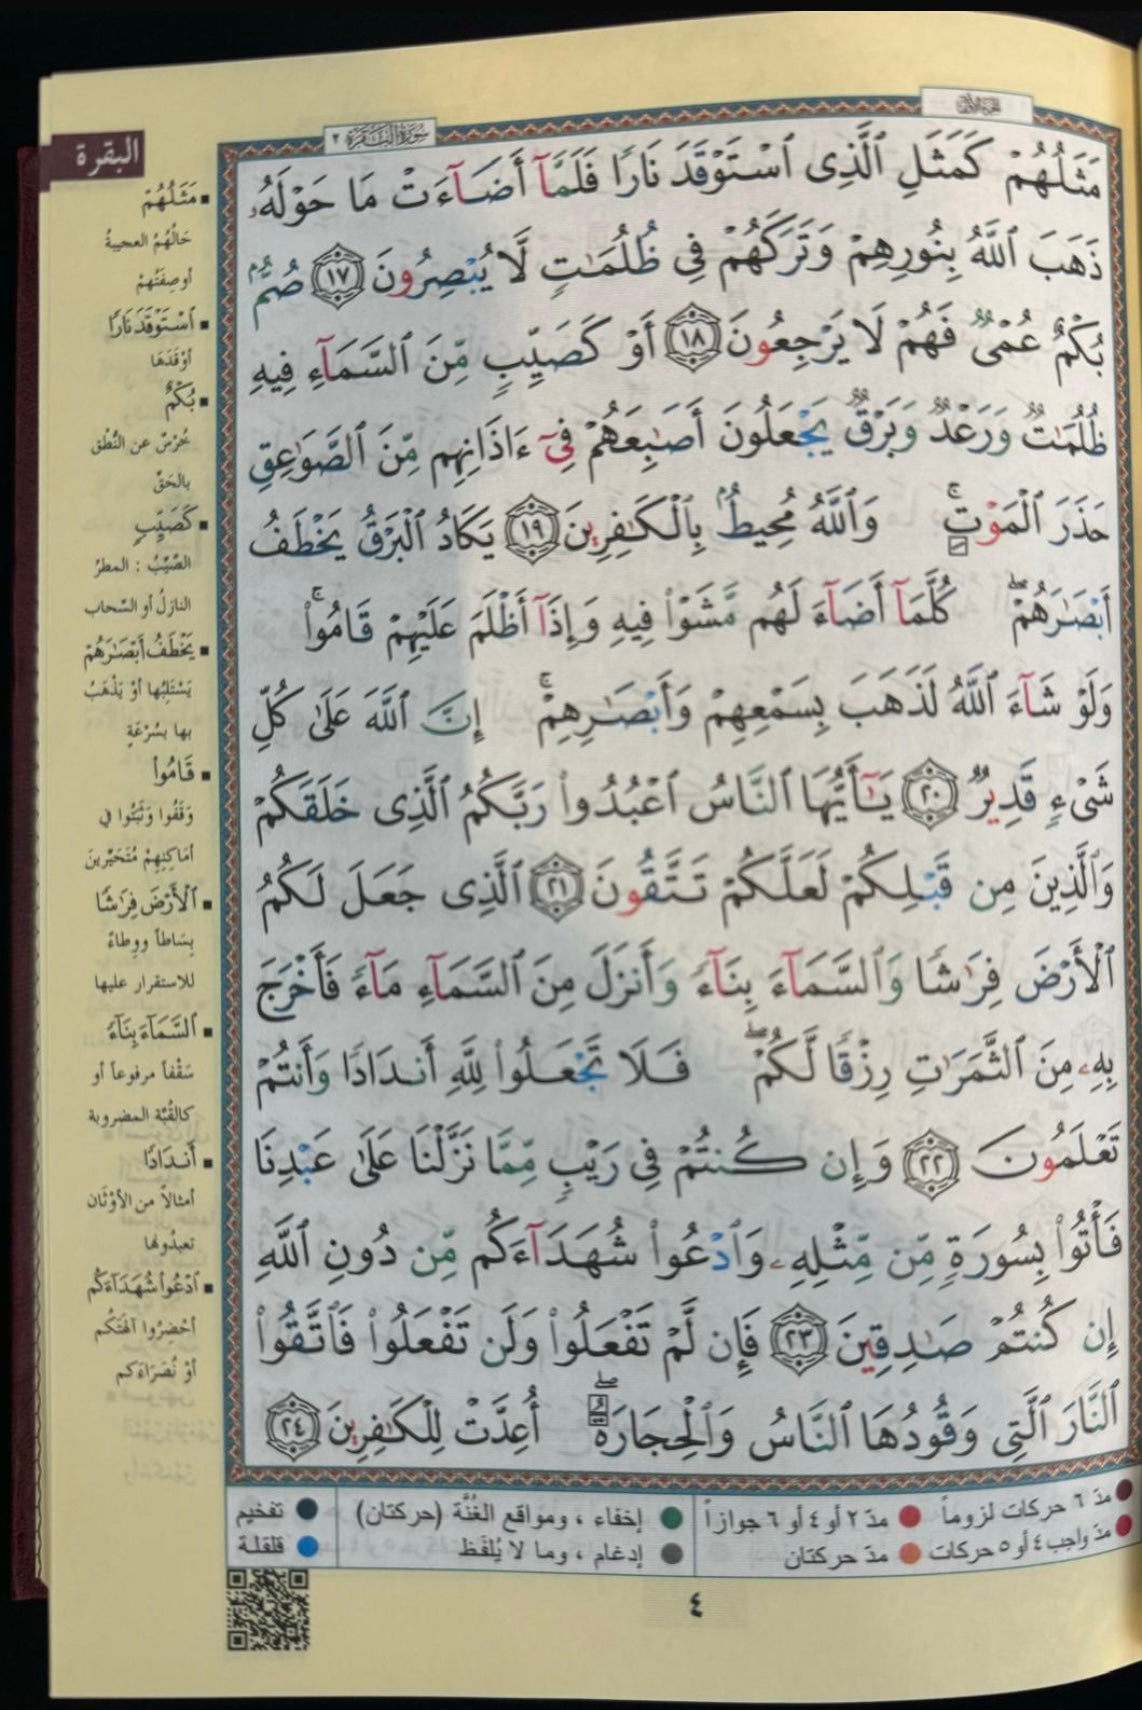 الجزء الأول
سورة البقرة ٢
البقرة
مَثَلُهُمْ كَمَثَلِ ٱلَّذِى ٱسْتَوْقَدَ نَارًا فَلَمَّآ أَضَآءَتْ مَا حَوْلَهُۥ
ذَهَبَ ٱللَّهُ بِنُورِهِمْ وَتَرَكَهُمْ فِى ظُلُمَـٰتٍ لَّا يُبْصِرُونَ ١٧ صُمٌّۢ
بُكْمٌ عُمْىٌ فَهُمْ لَا يَرْجِعُونَ ١٨ أَوْ كَصَيِّبٍ مِّنَ ٱلسَّمَآءِ فِيهِ
ظُلُمَـٰتٌ وَرَعْدٌ وَبَرْقٌ يَجْعَلُونَ أَصَـٰبِعَهُمْ فِىٓ ءَاذَانِهِم مِّنَ ٱلصَّوَٰعِقِ
حَذَرَ ٱلْمَوْتِ ۚ وَٱللَّهُ مُحِيطٌۢ بِٱلْكَـٰفِرِينَ ١٩ يَكَادُ ٱلْبَرْقُ يَخْطَفُ
أَبْصَـٰرَهُمْ ۖ كُلَّمَآ أَضَآءَ لَهُم مَّشَوْا۟ فِيهِ وَإِذَآ أَظْلَمَ عَلَيْهِمْ قَامُوا۟ ۚ
وَلَوْ شَآءَ ٱللَّهُ لَذَهَبَ بِسَمْعِهِمْ وَأَبْصَـٰرِهِمْ ۚ إِنَّ ٱللَّهَ عَلَىٰ كُلِّ
شَىْءٍ قَدِيرٌ ٢٠ يَـٰٓأَيُّهَا ٱلنَّاسُ ٱعْبُدُوا۟ رَبَّكُمُ ٱلَّذِى خَلَقَكُمْ
وَٱلَّذِينَ مِن قَبْلِكُمْ لَعَلَّكُمْ تَتَّقُونَ ٢١ ٱلَّذِى جَعَلَ لَكُمُ
ٱلْأَرْضَ فِرَٰشًا وَٱلسَّمَآءَ بِنَآءً وَأَنزَلَ مِنَ ٱلسَّمَآءِ مَآءً فَأَخْرَجَ
بِهِۦ مِنَ ٱلثَّمَرَٰتِ رِزْقًا لَّكُمْ ۖ فَلَا تَجْعَلُوا۟ لِلَّهِ أَندَادًا وَأَنتُمْ
تَعْلَمُونَ ٢٢ وَإِن كُنتُمْ فِى رَيْبٍ مِّمَّا نَزَّلْنَا عَلَىٰ عَبْدِنَا
فَأْتُوا۟ بِسُورَةٍ مِّن مِّثْلِهِۦ وَٱدْعُوا۟ شُهَدَآءَكُم مِّن دُونِ ٱللَّهِ
إِن كُنتُمْ صَـٰدِقِينَ ٢٣ فَإِن لَّمْ تَفْعَلُوا۟ وَلَن تَفْعَلُوا۟ فَٱتَّقُوا۟
ٱلنَّارَ ٱلَّتِى وَقُودُهَا ٱلنَّاسُ وَٱلْحِجَارَةُ ۖ أُعِدَّتْ لِلْكَـٰفِرِينَ ٢٤
▪ مَثَلُهُمْ
حَالُهُمُ العجيبةُ
أو صِفَتُهمْ
▪ ٱسْتَوْقَدَ نَارًا
أوْقَدَهَا
▪ بُكْمٌ
خُرْسٌ عن النُّطْقِ
بالحَقِّ
▪ كَصَيِّبٍ
الصَّيِّبُ : المطرُ
النازلُ أو السَّحاب
▪ يَخْطَفُ أَبْصَـٰرَهُمْ
يَسْتَلِبُها أوْ يَذْهَبُ
بها بسُرْعَةٍ
▪ قَامُوا۟
وَقَفُوا وَثَبَتُوا في
أمَاكِنِهِمْ مُتَحَيِّرينَ
▪ ٱلْأَرْضَ فِرَٰشًا
بِسَاطاً ووِطاءً
للاستقرار عليها
▪ ٱلسَّمَآءَ بِنَآءً
سَقْفاً مرفوعاً أو
كالقُبَّة المضروبة
▪ أَندَادًا
أمثالاً من الأوْثَان
تعبدُونها
▪ ٱدْعُوا۟ شُهَدَآءَكُم
أحْضِرُوا آلهَتَكُم
أوْ نُصَرَاءَكم
مدّ ٦ حركات لزوماً ● مدّ ٢ أو ٤ أو ٦ جوازاً ● إخفاء ، ومواقع الغُنَّة (حركتان) ● تفخيم
مدّ واجب ٤ أو ٥ حركات ● مدّ حركتان ● إدغام ، وما لا يُلفَظ ● قلقلة
٤